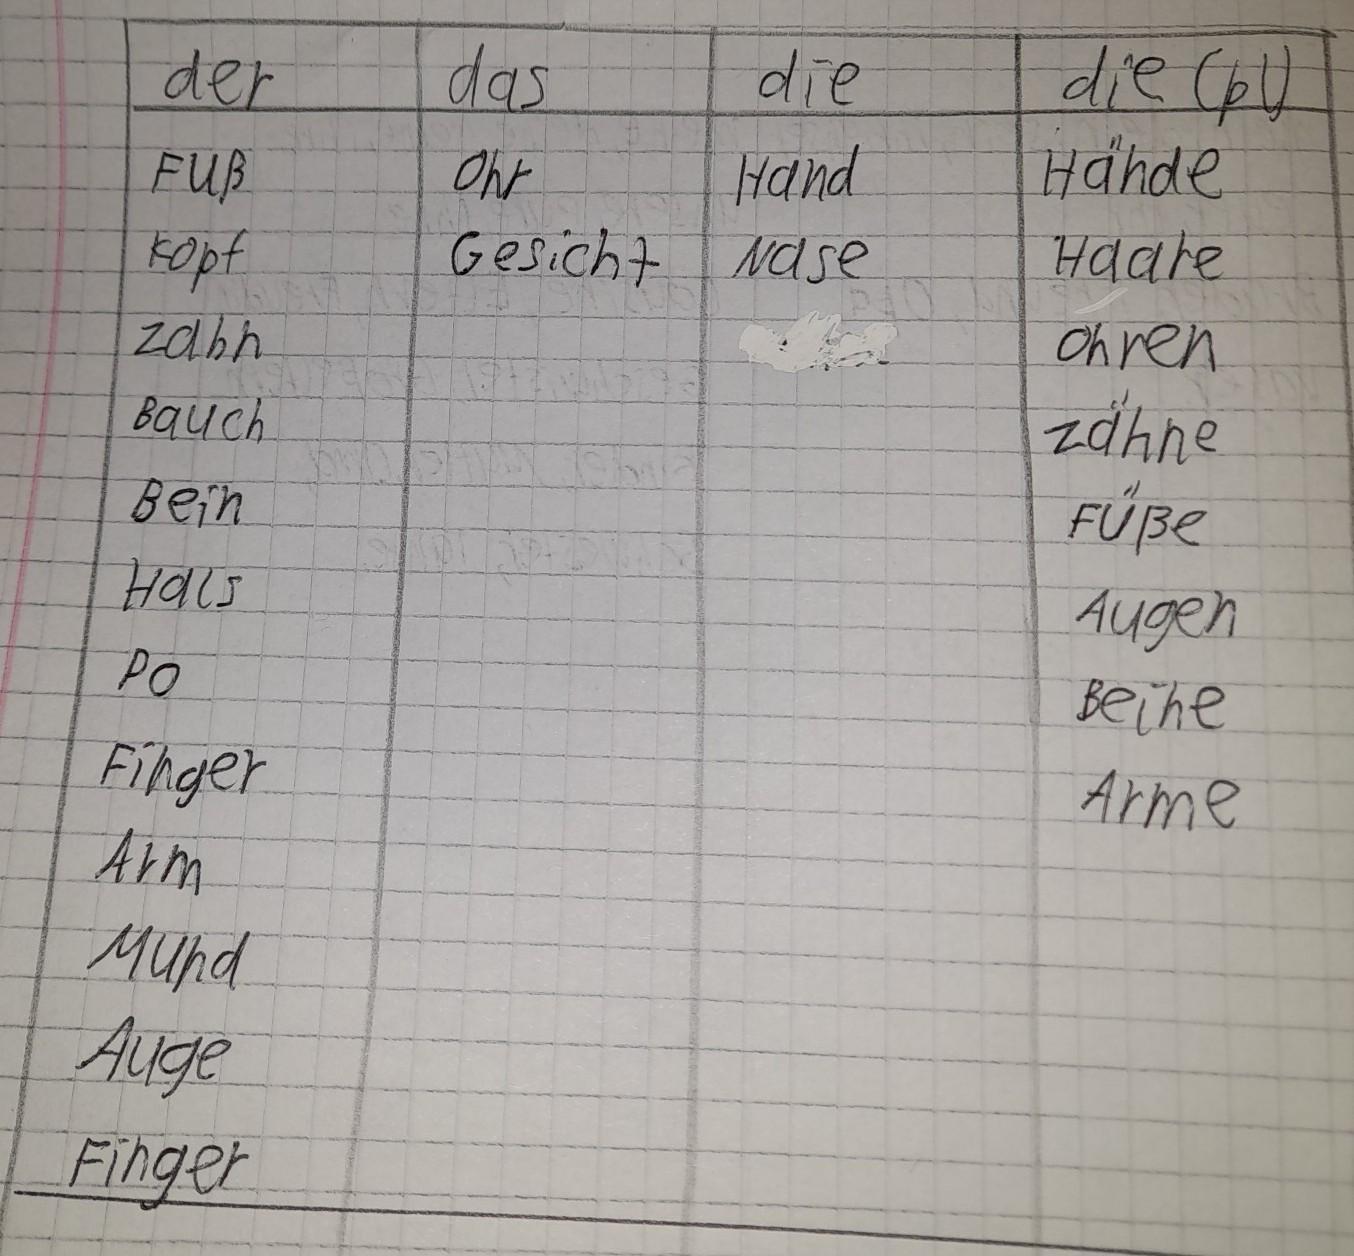 der das die die (pl)
Fuß Ohr Hand Hände
Kopf Gesicht Nase Haare
Zahn Ohren
Bauch Zähne
Bein Füße
Hals Augen
Po Beine
Finger Arme
Arm
Mund
Auge
Finger